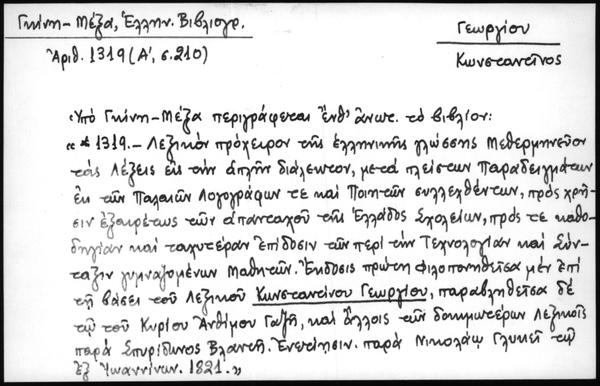 Γκίνη-Μέξα, Ἑλλην. Βιβλιογρ.
Ἀριθ. 1319 (Α', σ. 210)
Γεωργίου
Κωνσταντῖνος
Ὑπό Γκίνη-Μέξα περιγράφεται ἔνθ' ἄνωτ. τό βιβλίον:
«*1319.- Λεξικόν πρόχειρον τῆς ἑλληνικῆς γλώσσης Μεθερμηνεῦον
τάς λέξεις εἰς τήν ἁπλῆν διάλεκτον, μετά πλείστων Παραδειγμάτων
ἐκ τῶν Παλαιῶν Λογογράφων τε καί Ποιητῶν συλλεχθέντων, πρός χρῆ-
σιν ἐξαιρέτως τῶν ἁπανταχοῦ τῆς Ἑλλάδος Σχολείων, πρός τε καθο-
δηγίαν καί ταχυτέραν ἐπίδοσιν τῶν περί τήν Τεχνολογίαν καί Σύν-
ταξιν γυμναζομένων Μαθητῶν. Ἔκδοσις πρώτη Φιλοπονηθεῖσα μέν ἐπί
τῇ βάσει τοῦ Λεξικοῦ Κωνσταντίνου Γεωργίου, παραβληθεῖσα δέ
τῷ τοῦ Κυρίου Ἀνθίμου Γαζῆ, καί ἄλλοις τῶν δοκιμωτέρων Λεξικοῖς
παρά Σπυρίδωνος Βλαντῆ. Ἐνετίῃσιν. παρά Νικολάῳ Γλυκεῖ τῷ
ἐξ Ἰωαννίνων. 1821.»